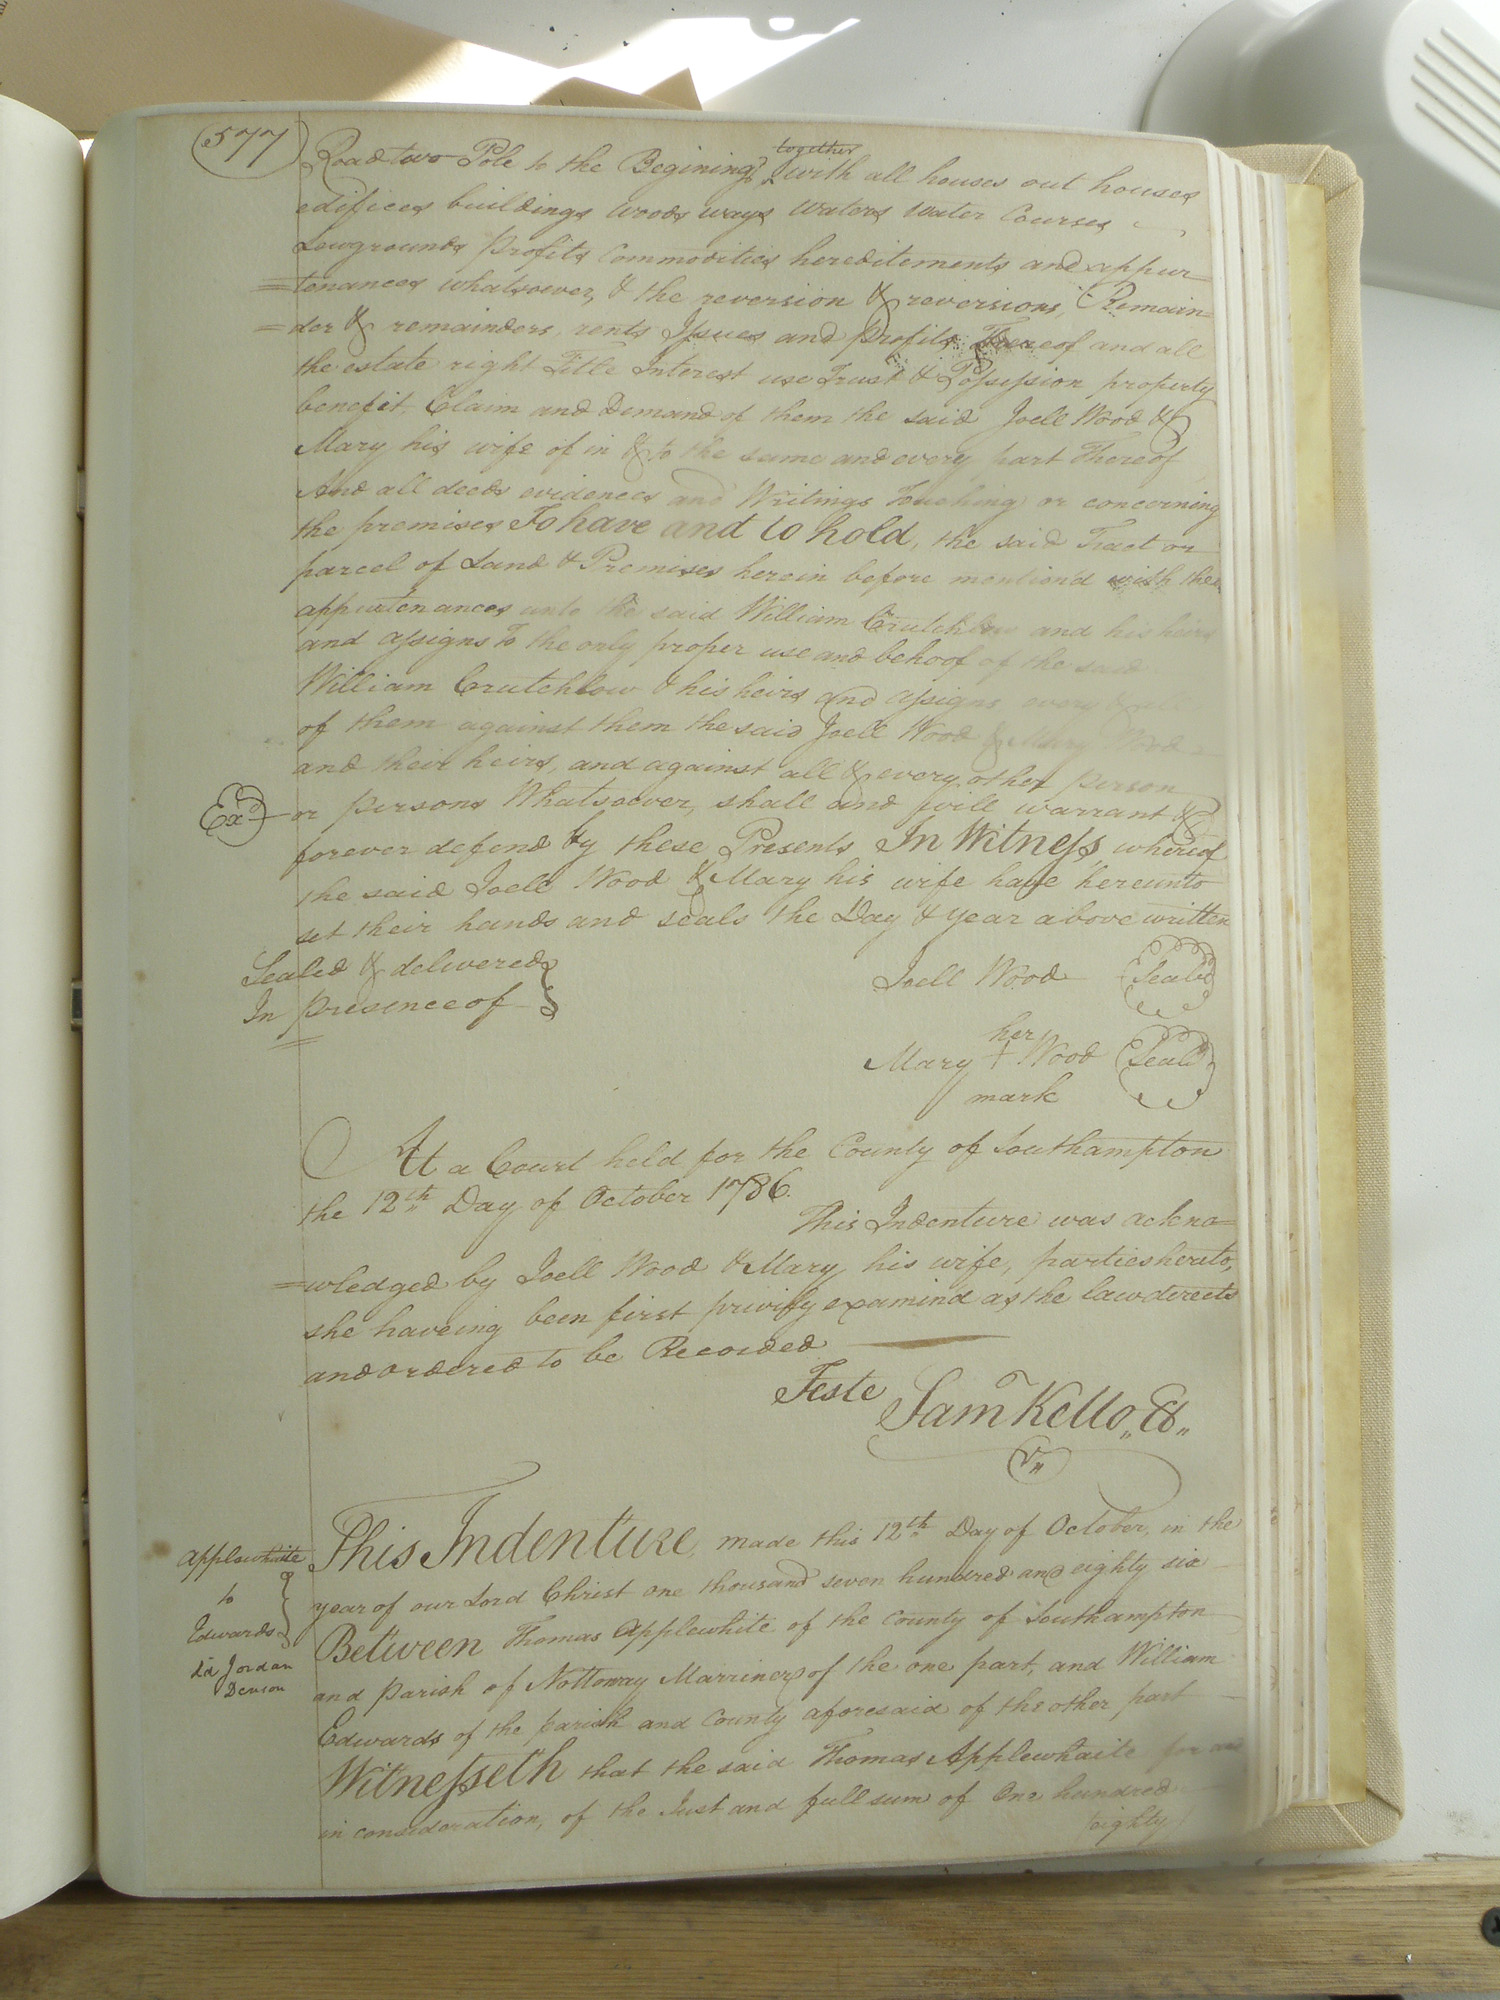 577
together
Road two Pole to the Begining, with all houses out houses
edifices buildings woods ways waters water Courses
Lowgrounds profits Commodities hereditements and appur=
=tenances whatsoever, & the reversion & reversions, Remain=
=der & remainders, rents Issues and profits Thereof and all
the estate right Title Interest use Trust & Possession property
benefit, Claim and Demand of them the said Joell Wood &
Mary his wife of in & to the same and every part Thereof
And all deeds evidences and Writings Touching or concerning
the premises To have and to hold, the said Tract or
parcel of Land & Premises herein before mention'd with the
appurtenances unto the said William Crutchlow and his heirs
and assigns To the only proper use and behoof of the said
William Crutchlow & his heirs and assigns every & all
of them against them the said Joell Wood & Mary Wood
and their heirs, and against all & every other person
Exd
or persons Whatsoever, shall and will warrant &
forever defend by these Presents In Witness whereof
the said Joell Wood & Mary his wife have hereunto
set their hands and seals the Day & year above written
Sealed & delivered
In presence of
Joell Wood Seald
her
Mary + Wood Seald
mark
At a Court held for the County of Southampton
the 12th Day of October 1786.
This Indenture was ackno=
=wledged by Joell Wood & Mary his wife, parties hereto,
she haveing been first privily examind as the law directs
and ordered to be Recorded
Teste
Saml Kello,, Ct,,
Applewhaite
to
Edwards
Jordan
Denson
This Indenture, made this 12th Day of October, in the
year of our Lord Christ one thousand seven hundred and eighty six
Between Thomas Applewhite of the County of Southampton
and parish of Nottoway Marriner of the one part, and William
Edwards of the parish and County aforesaid of the other part
Witnesseth that the said Thomas Applewhaite for and
in consideration, of the Just and full sum of One hundred
eighty